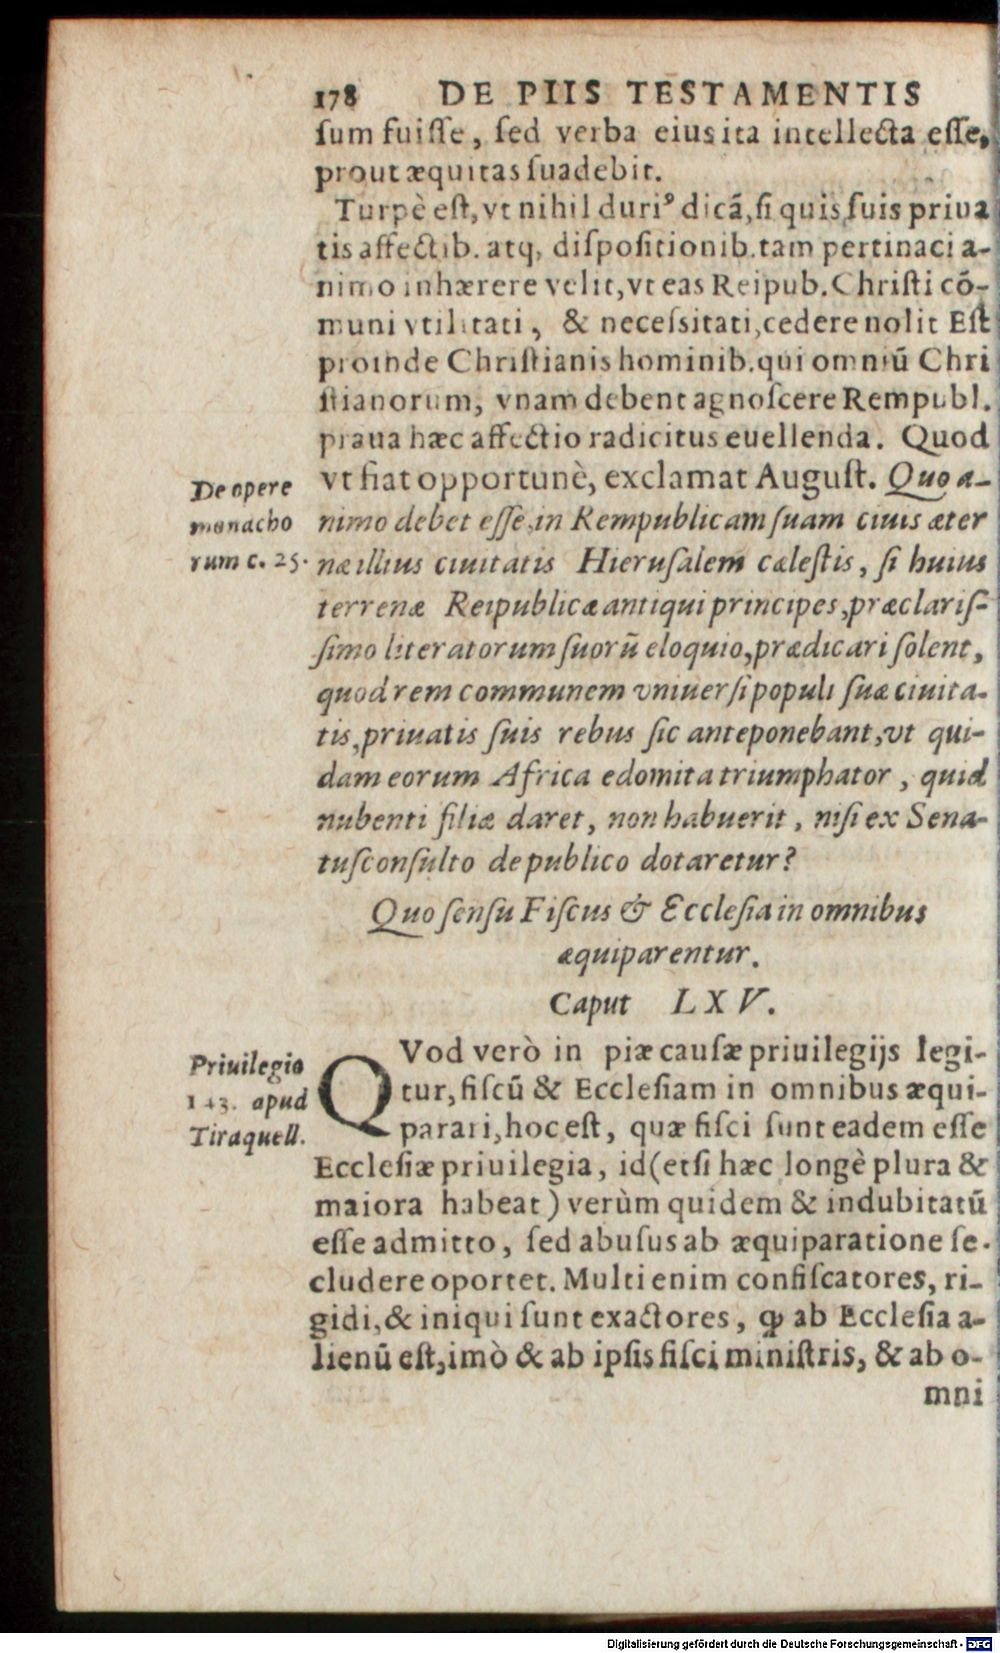 178 DE PIIS TESTAMENTIS
ſum fuiſſe, ſed verba eius ita intellecta eſſe,
prout æquitas ſuadebit.
Turpè eſt, vt nihil duriꝰ dicā, ſi quis ſuis priua
tis affectib. atq; diſpoſitionib. tam pertinaci a-
nimo inhærere velit, vt eas Reipub. Chriſti cō-
muni vtilitati, & neceſsitati, cedere nolit Eſt
proinde Chriſtianis hominib. qui omniū Chri
ſtianorum, vnam debent agnoſcere Rempubl.
praua hæc affectio radicitus euellenda. Quod
vt fiat opportunè, exclamat Auguſt. Quo a-
De opere
monacho
rum c. 25.
nimo debet eſſe in Rempublicam ſuam ciuis æter
næ illius ciuitatis Hieruſalem cæleſtis, ſi huius
terrenæ Reipublicæ antiqui principes, præclariſ-
ſimo literatorum ſuorū eloquio, prædicari ſolent,
quod rem communem vniuerſi populi ſuæ ciuita-
tis, priuatis ſuis rebus ſic anteponebant, vt qui-
dam eorum Africa edomita triumphator, quid
nubenti filiæ daret, non habuerit, niſi ex Sena-
tuſconſulto de publico dotaretur?
Quo ſenſu Fiſcus & Eccleſia in omnibus
æquiparentur.
Caput LXV.
Priuilegio
143. apud
Tiraquell.
QVod verò in piæ cauſæ priuilegijs legi-
tur, fiſcū & Eccleſiam in omnibus æqui-
parari, hoc eſt, quæ fiſci ſunt eadem eſſe
Eccleſiæ priuilegia, id (etſi hæc longè plura &
maiora habeat) verùm quidem & indubitatū
eſſe admitto, ſed abuſus ab æquiparatione ſe-
cludere oportet. Multi enim confiſcatores, ri-
gidi, & iniqui ſunt exactores, ꝙ ab Eccleſia a-
lienū eſt, imò & ab ipſis fiſci miniſtris, & ab o-
mni
Digitalisierung gefördert durch die Deutsche Forschungsgemeinschaft - DFG